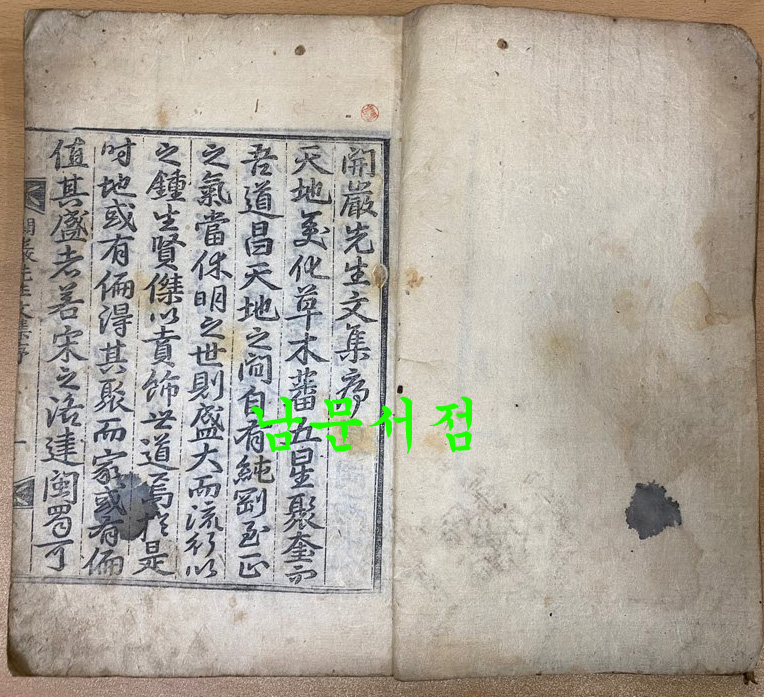 開巖先生文集序
天地變化草木蕃五星聚奎而
吾道昌天地之間自有純剛至正
之氣當休明之世則盛大而流行以
之鍾生賢傑以賁飾世道焉於是
時地或有偏得其聚而家或有偏
值其盛者若宋之洛建閩蜀可
開巖先生文集序
一
남문서점